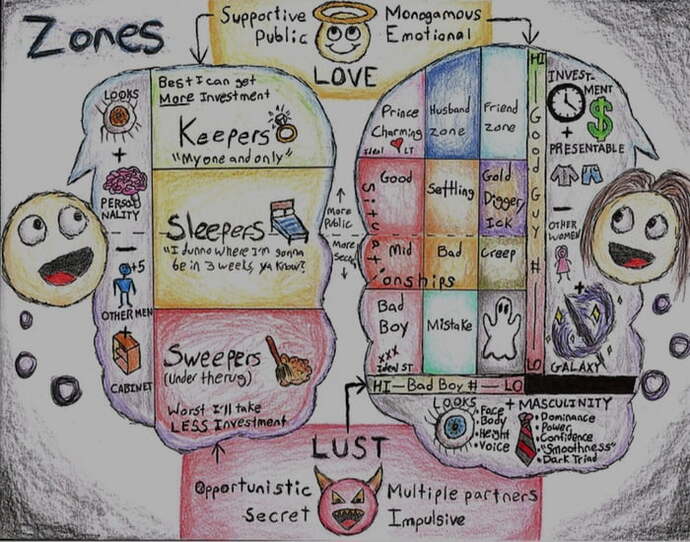 Zones
Supportive
Public
Monogamous
Emotional
LOVE
LOOKS
+
PERSONALITY
+5
OTHER MEN
CABINET
Best I can get
More Investment
Keepers
"My one and only"
Sleepers
"I dunno where I'm gonna
be in 3 weeks, ya know?"
Sweepers
(Under the rug)
Worst I'll take
LESS Investment
More
Public
More
Prince
Charming
Ideal LT
Husband
zone
Friend
zone
Good
Settling
Gold
Digger/
Ick
Situationships
Mid
Bad
Creep
Bad
Boy
xxx
Ideal ST
Mistake
HI
Good Guy #
LO
INVEST-
MENT
$
+
PRESENTABLE
OTHER
WOMEN
+
GALAXY
HI-Bad Boy #-LO
LOOKS
• Face
• Body
• Height
• Voice
+ MASCULINITY
• Dominance
• Power,
Confidence
• "Smoothness"
• Dark Triad
LUST
Opportunistic
Secret
Multiple partners
Impulsive